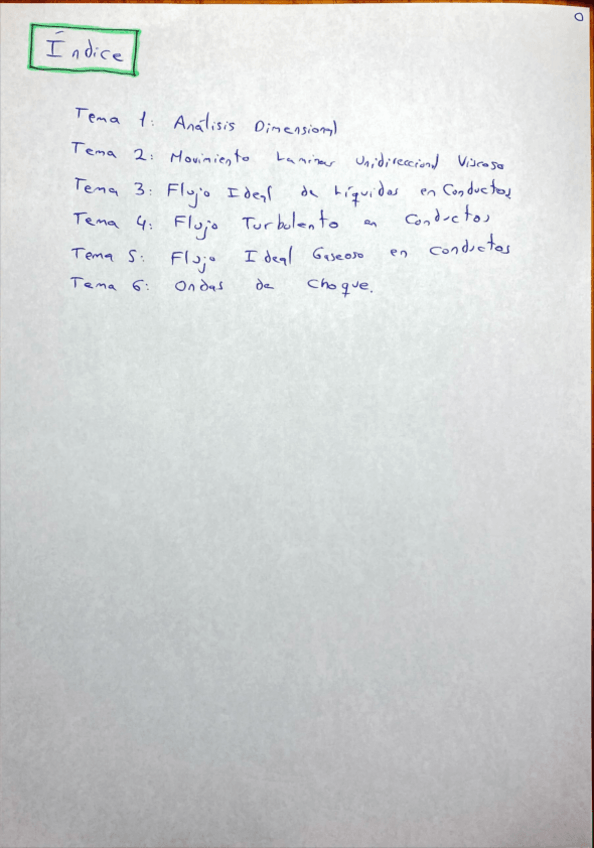 0
Índice
Tema 1: Análisis Dimensional
Tema 2: Movimiento Laminar Unidireccional Viscoso
Tema 3: Flujo Ideal de Líquidos en Conductos
Tema 4: Flujo Turbulento en Conductos
Tema 5: Flujo Ideal Gaseoso en conductos
Tema 6: Ondas de Choque.